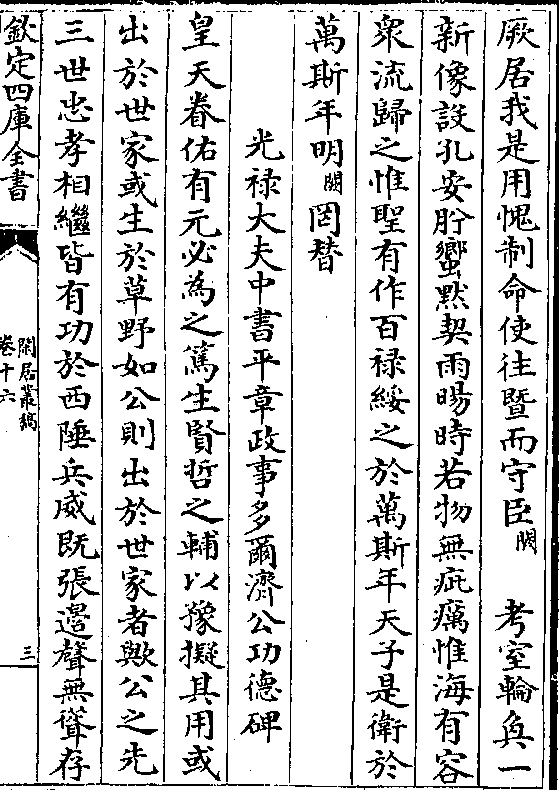 厥居我是用愧制命使往暨而守臣闕　考室輪奐一
新像設孔安肸蠁黙契雨暘時若物無疵癘惟海有容
衆流歸之惟聖有作百禄綏之於萬斯年天子是衛於
萬斯年明闕罔替
光禄大夫中書平章政事多爾濟公功德碑
皇天眷佑有元必為之篤生賢哲之輔以豫擬其用或
出於世家或生於草野如公則出於世家者歟公之先
三世忠孝相繼皆有功於西陲兵威既張邉聲無聳存
欽定四庫全書
閑居叢稿
卷十六
三